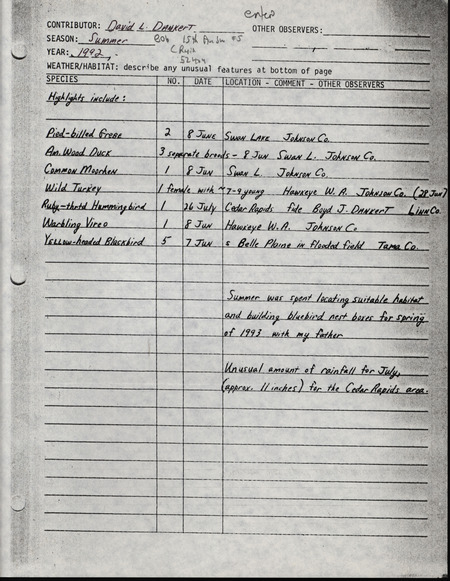 enter
CONTRIBUTOR: David L. Dankert OTHER OBSERVERS:
SEASON: Summer 806 15th Ave
YEAR: 1992
52404
WEATHER/HABITAT: describe any unusual features at bottom of page
SPECIES NO. DATE LOCATION - COMMENT - OTHER OBSERVERS
Highlights include:
Pied-billed Grebe 2 8 June Swan Lake Johnson Co.
Am. Wood Duck 3 separate broods - 8 Jun Swan L. Johnson Co.
Common Moorhen 1 8 Jun Swan L. Johnson Co.
Wild Turkey 1 female with ~7-9 young Hawkeye W.A. Johnson Co. (28 Jun)
Ruby-thrtd Hummingbird 1 26 July Cedar Rapids fide Boyd J. Dankert Linn Co.
Warbling Vireo 1 8 Jun Hawkeye W.A. Johnson Co.
Yellow-headed Blackbird 5 7 Jun s Belle Plaine in flooded field Tama Co.
Summer was spent locating suitable habitat
and building bluebird nest boxes for spring
of 1993 with my father
Unusual amount of rainfall for July,
(approx. 11 inches) for the Cedar Rapids area.